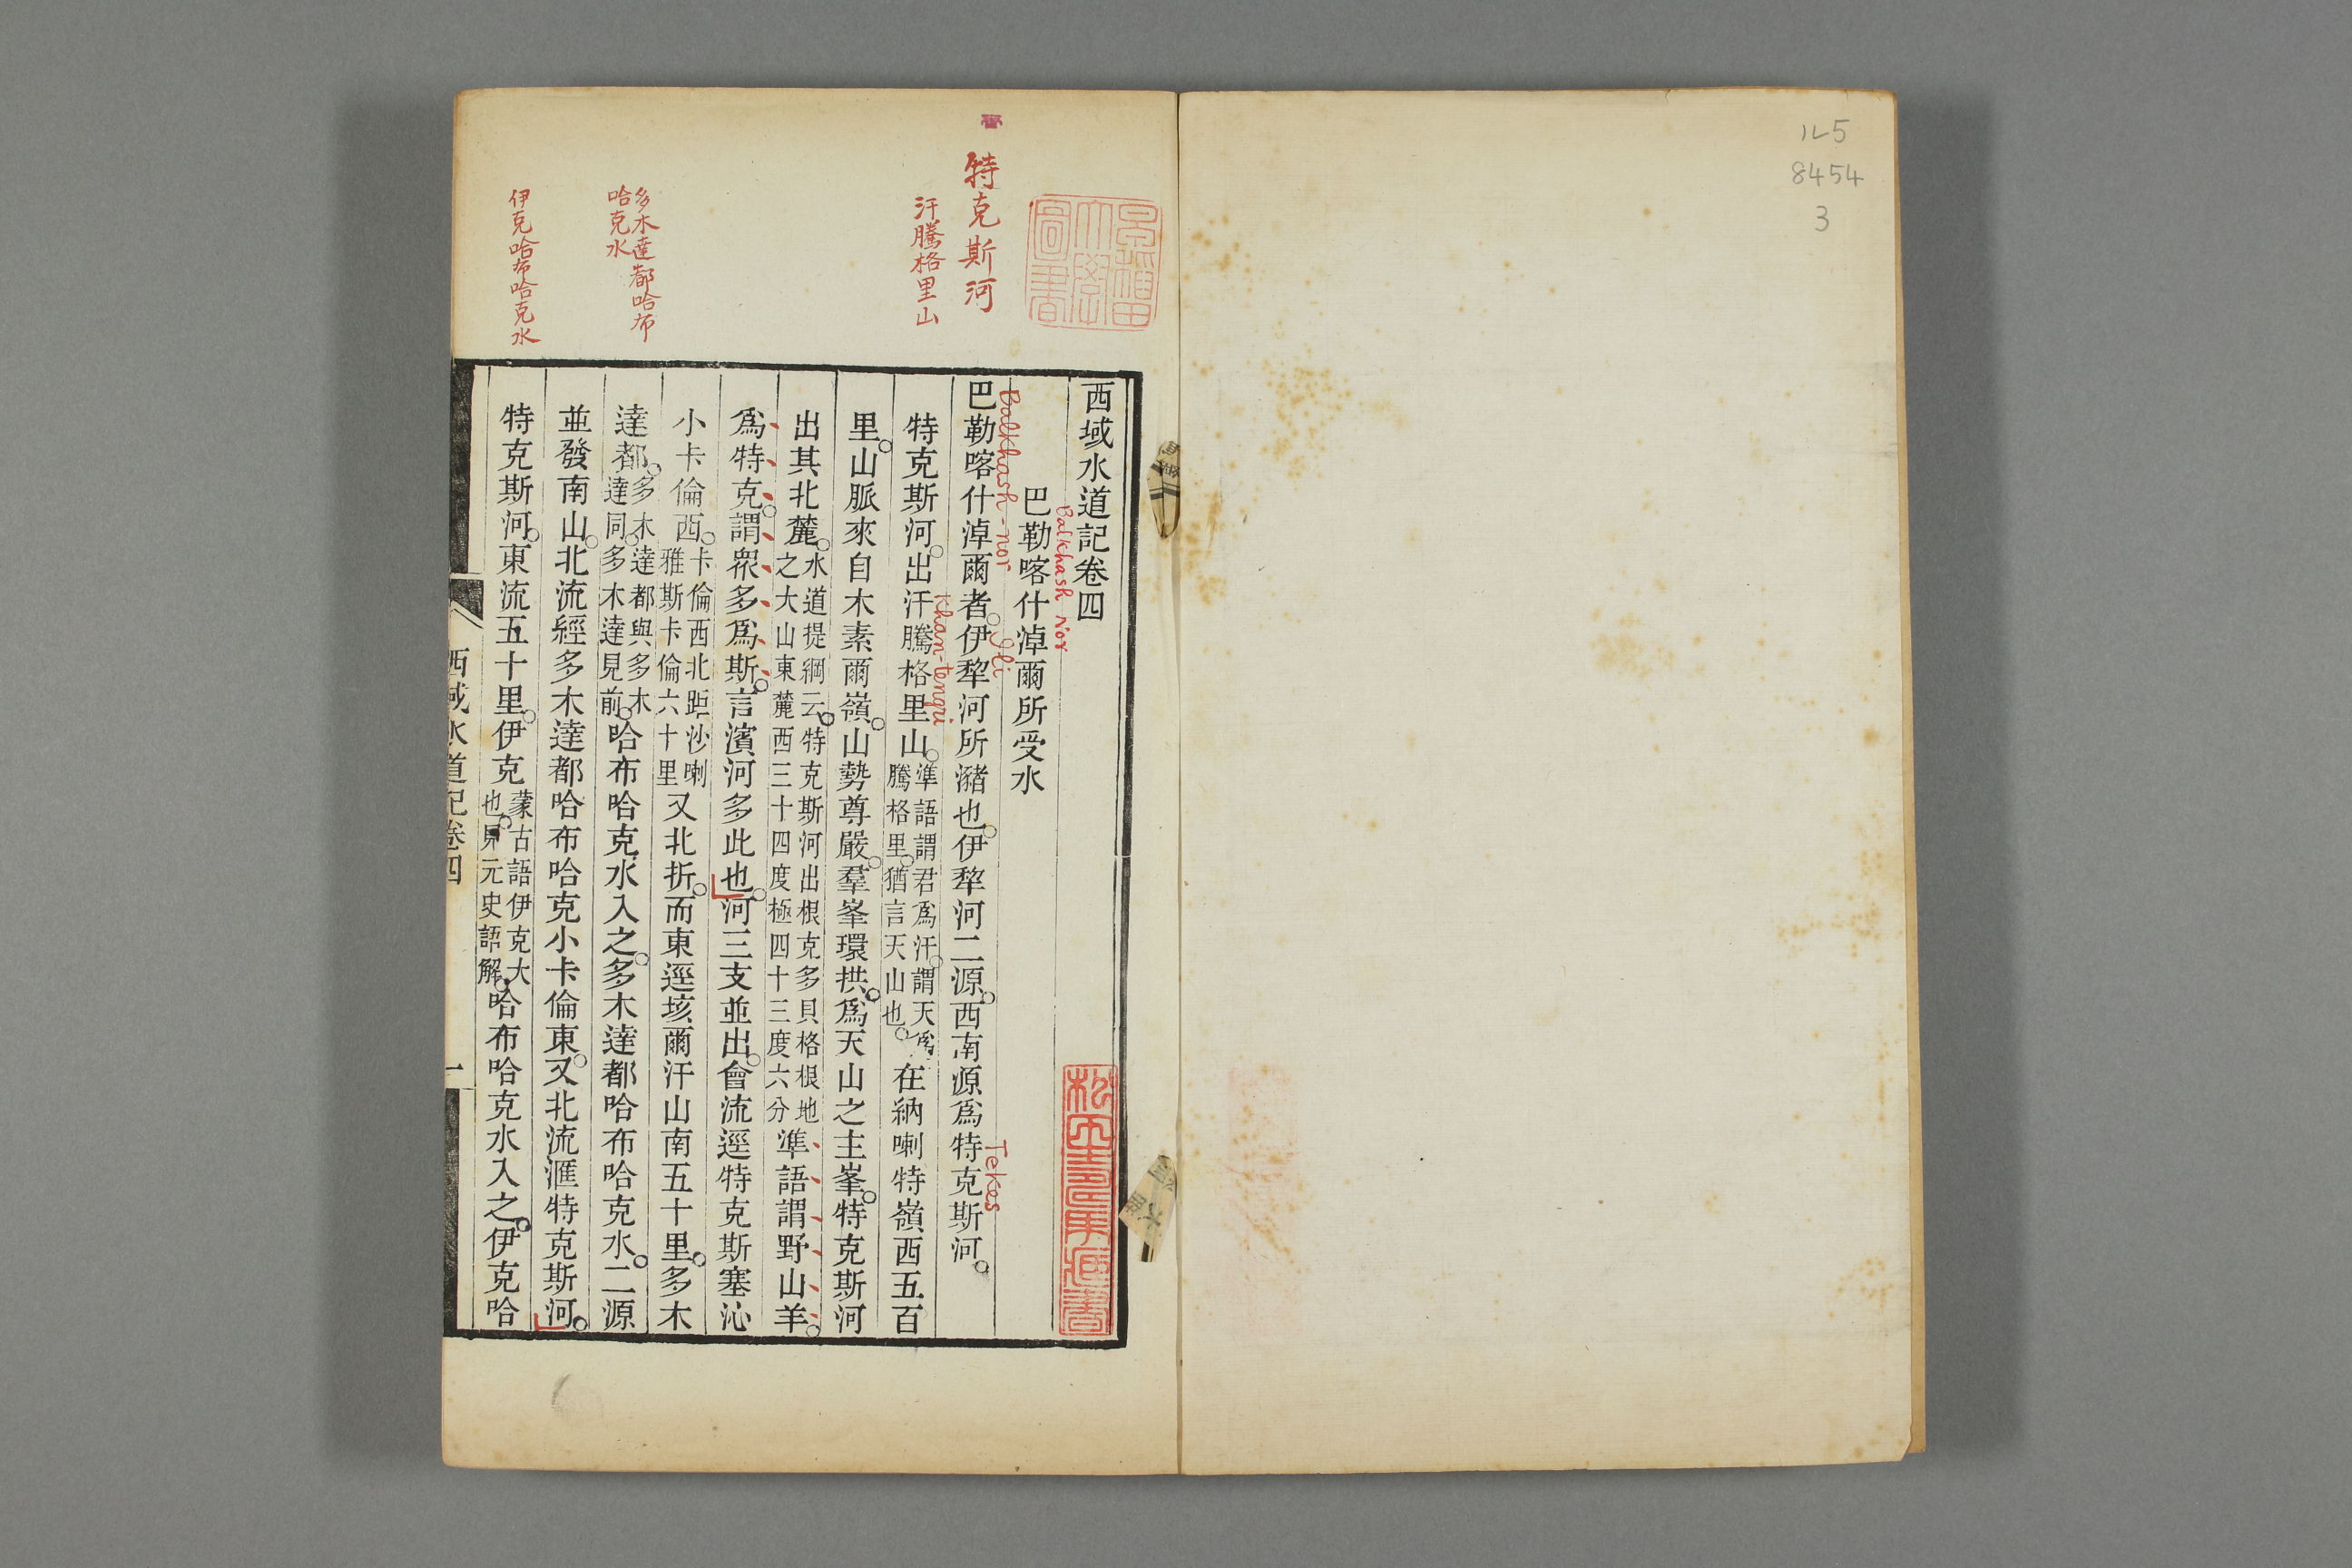 ル5
8454
3
早稲田大學圖書
特克斯河
汗騰格里山
多木達都哈布
哈克水
伊克哈布哈克水
西域水道記卷四
Balkhash Nor
巴勒喀什淖爾所受水
Balkhash-nor Ili Tekes
巴勒喀什淖爾者。伊犂河所瀦也。伊犂河二源。西南源爲特克斯河。
Khan-tengri
特克斯河。出汗騰格里山。準語謂君爲汗。謂天爲騰格里。猶言天山也。在納喇特嶺西五百
里。山脈來自木素爾嶺。山勢尊嚴。羣峯環拱。爲天山之主峯。特克斯河
出其北麓。水道提綱云。特克斯河出根克多貝格根地之大山東麓西三十四度極四十三度六分準語謂野山羊。
爲特克。謂衆多爲斯。言濱河多此也。河三支並出。會流逕特克斯塞沁
小卡倫西。卡倫西北距沙喇雅斯卡倫六十里又北折。而東逕垓爾汗山南五十里。多木
達都。多木達都與多木達同。多木達見前。哈布哈克水入之。多木達都哈布哈克水。二源
並發南山。北流經多木達都哈布哈克小卡倫東。又北流滙特克斯河。
特克斯河。東流五十里。伊克蒙古語伊克大也。見元史語解。哈布哈克水入之。伊克哈
西域水道記卷四
一